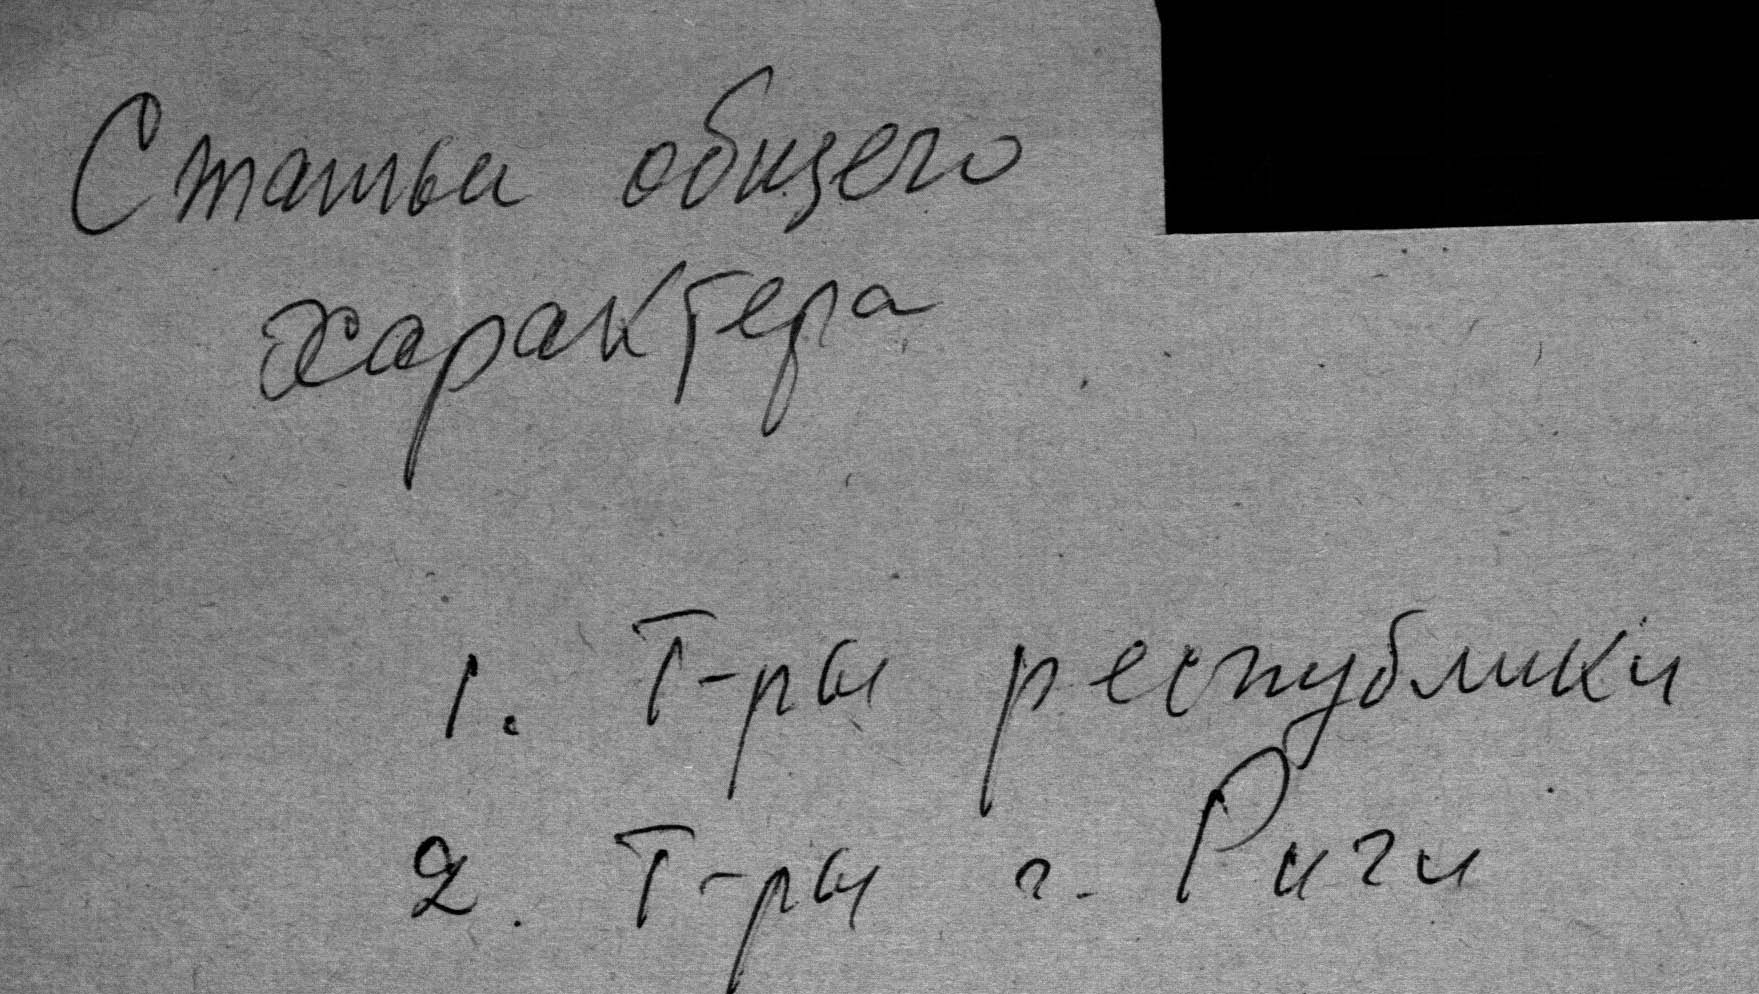 Статьи общего
характера
1. Т-ры республики
2. Т-ры г. Риги